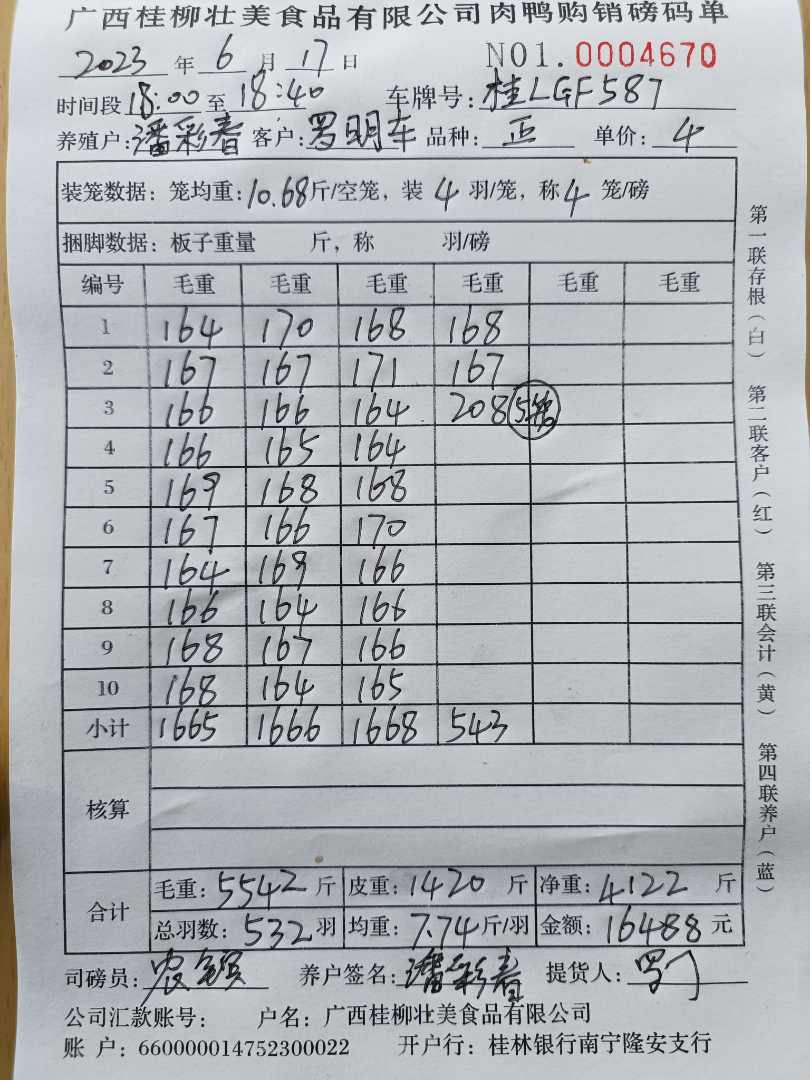 广西桂柳壮美食品有限公司肉鸭购销磅码单
2023 年 6 月 17 日 NO1.0004670
时间段 18:00 至 18:40 车牌号: 桂LGF587
养殖户: 潘彩春 客户: 罗明车 品种: 正 单价: 4
装笼数据: 笼均重: 10.68 斤/空笼, 装 4 羽/笼, 称 4 笼/磅
捆脚数据: 板子重量 斤, 称 羽/磅
编号 毛重 毛重 毛重 毛重 毛重 毛重
1 164 170 168 168
2 167 167 171 167
3 166 166 164 208 5笼
4 166 165 164
5 169 168 168
6 167 166 170
7 164 169 166
8 166 164 166
9 168 167 166
10 168 164 165
小计 1665 1666 1668 543
核算
合计 毛重: 5542 斤 皮重: 1420 斤 净重: 4122 斤
总羽数: 532 羽 均重: 7.74 斤/羽 金额: 16488 元
司磅员: 养户签名: 潘彩春 提货人:
公司汇款账号: 户名: 广西桂柳壮美食品有限公司
账 户: 660000014752300022 开户行: 桂林银行南宁隆安支行
第一联存根(白) 第二联客户(红) 第三联会计(黄) 第四联养户(蓝)